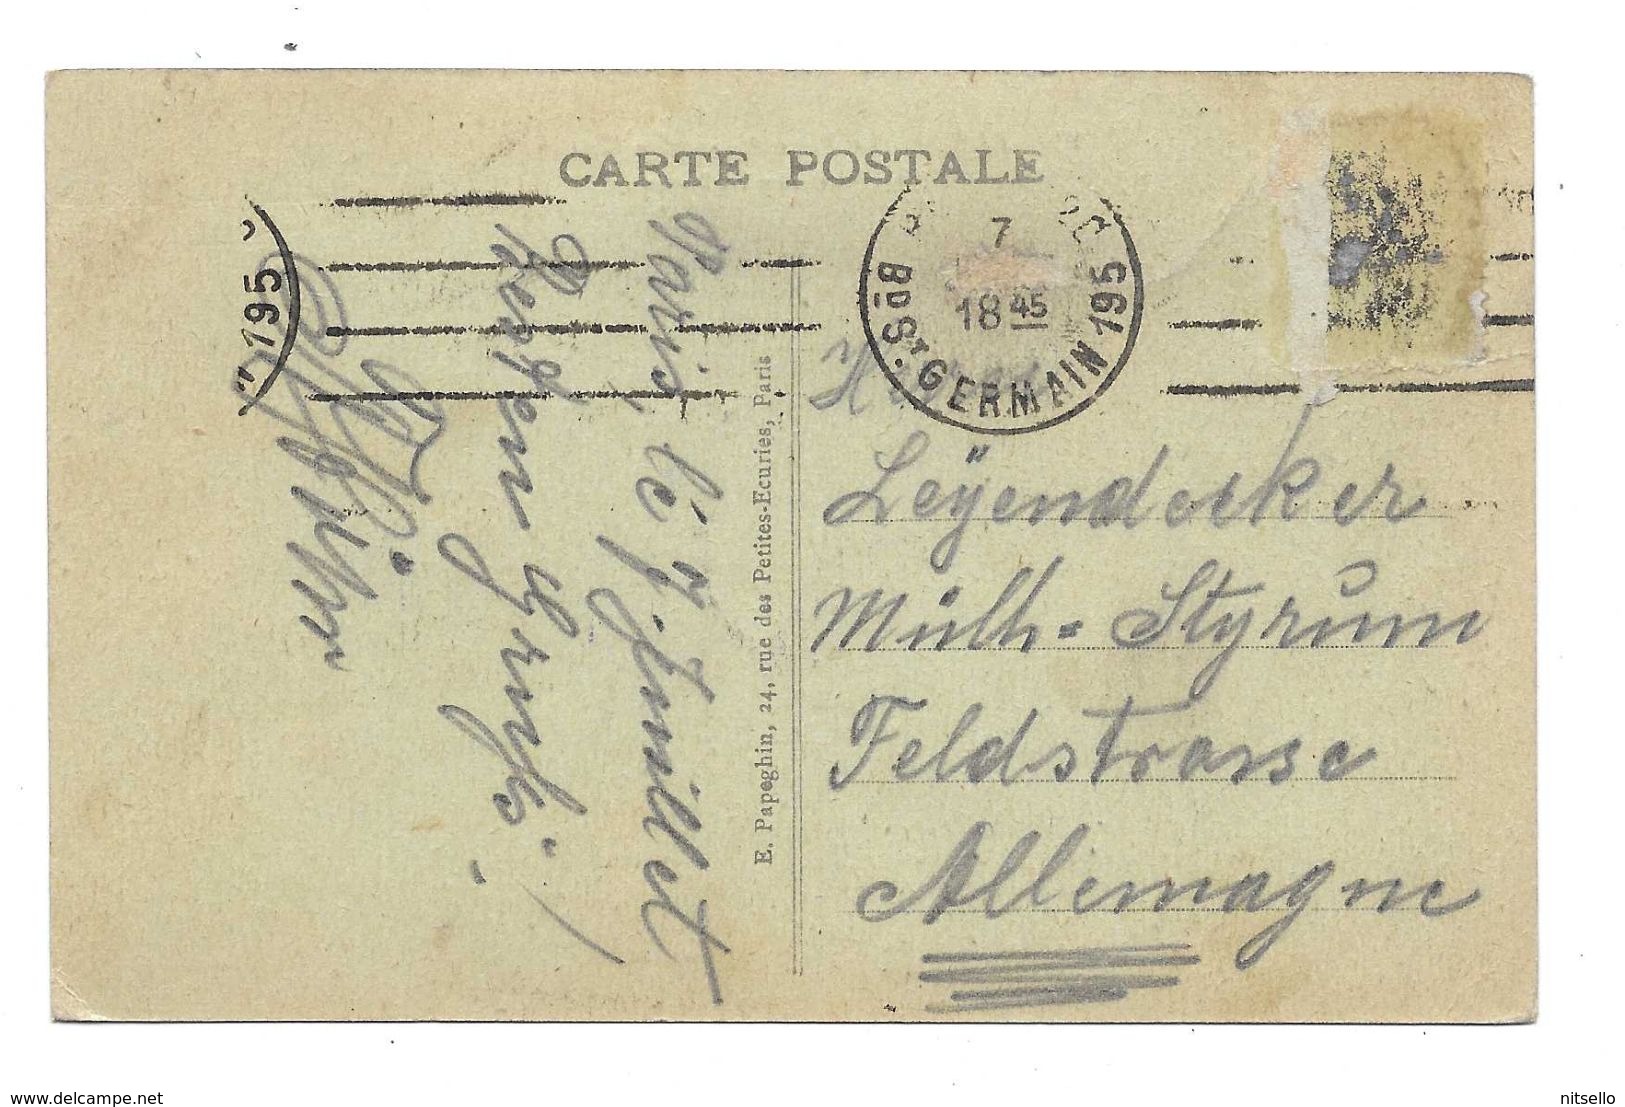 CARTE POSTALE
7
18 45
Bd St GERMAIN 195
195
Paris, le 7. Juillet
Herzen Grüße!
E. Papeghin, 24, rue des Petites-Ecuries, Paris
Leÿendecker
Mülh= Styrum
Feldstrasse
Allemagne
www.delcampe.net
nitsello